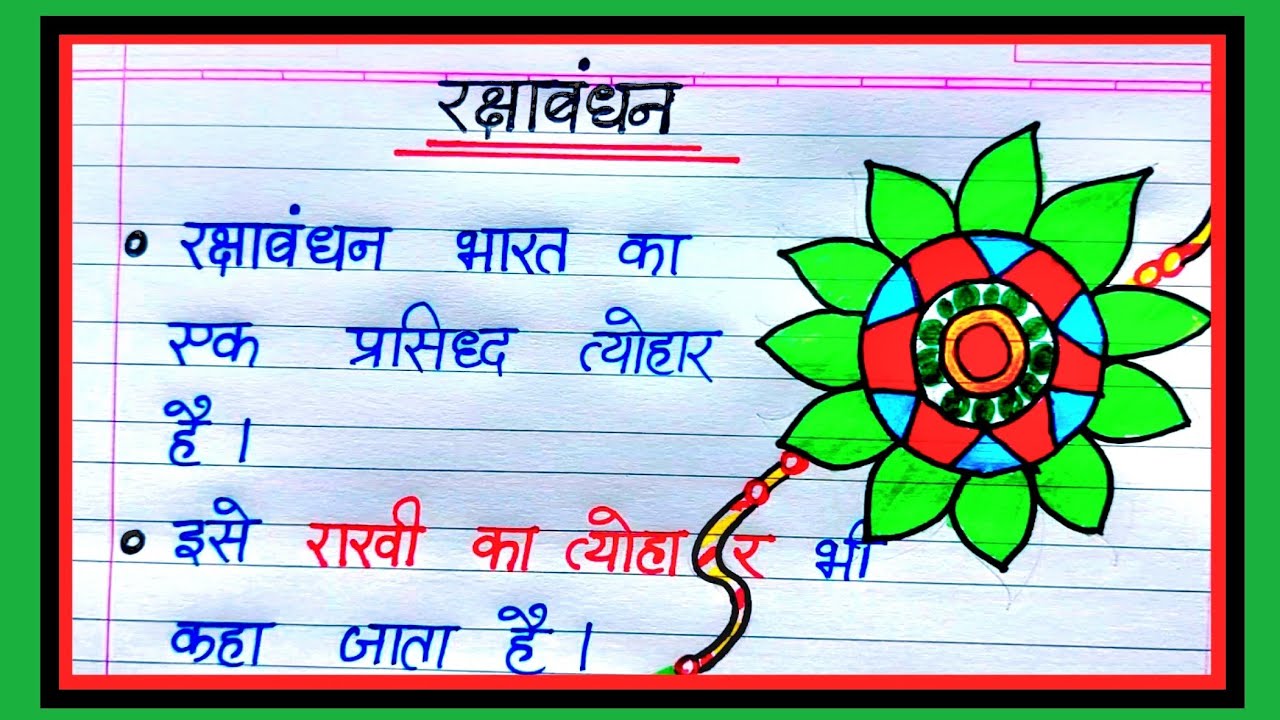 रक्षाबंधन
रक्षाबंधन भारत का
एक प्रसिध्द त्योहार
है।
इसे राखी का त्योहार भी
कहा जाता है।